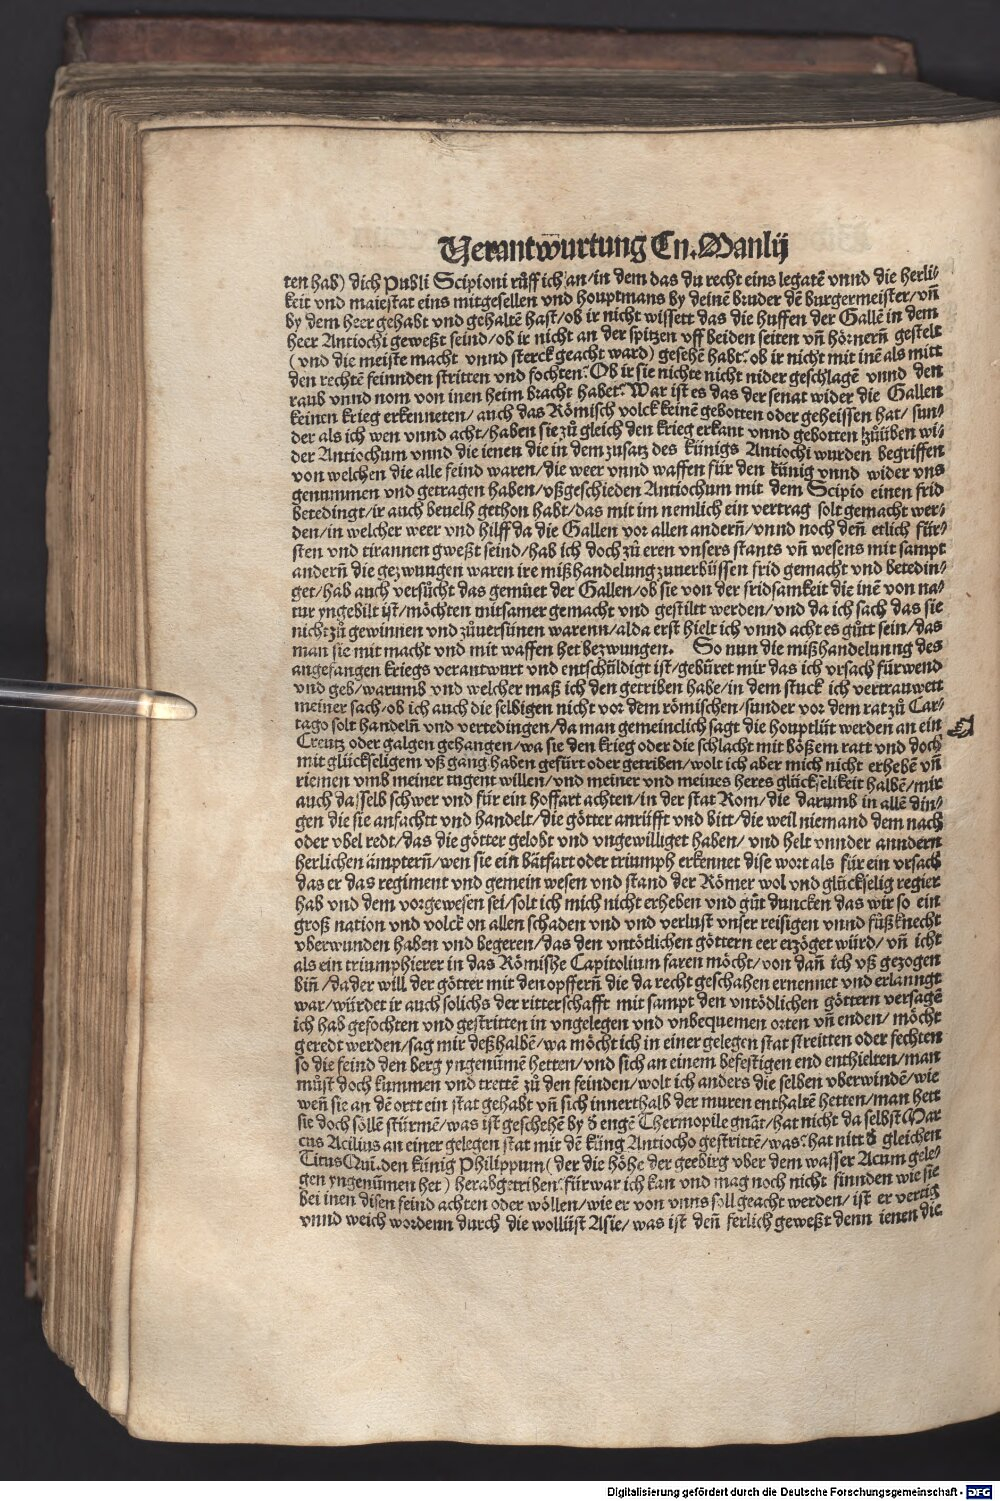 Verantwurtung Cn. Manlij
ten hab) dich Publi Scipioni růff ich an/in dem das du recht eins legatē vnnd die herli⸗
keit vnd maiestat eins mitgesellen vnd houptmans by deinē bruder dē burgermeister/vñ
by dem heer gehabt vnd gehaltē hast/ob ir nicht wissett das die huffen der Gallē in dem
heer Antiochi geweßt seind/ob ir nicht an der spitzen vff beiden seiten vñ hörnerñ gestelt
(vnd die meiste macht vnnd sterck geacht ward) gesehē habt? ob ir nicht mit inē als mitt
den rechtē feinnden stritten vnd fochten? Ob ir sie nichte nicht nider geschlagē vnnd den
raub vnnd nom von inen heim bracht habet? War ist es das der senat wider die Gallen
keinen krieg erkenneten/auch das Römisch volck keinē gebotten oder geheissen hat/sun⸗
der als ich wen vnnd acht/haben sie zů gleich den krieg erkant vnnd gebotten zůüben wi⸗
der Antiochum vnnd die ienen die in dem zusatz des künigs Antiochi wurden begriffen
von welchen die alle feind waren/die weer vnnd waffen für den künig vnnd wider vns
genummen vnd getragen haben/vßgeschieden Antiochum mit dem Scipio einen frid
betedingt/ir auch beuelh gethon habt/das mit im nemlich ein vertrag solt gemacht wer⸗
den/in welcher weer vnd hilff da die Gallen vor allen anderñ/vnnd noch deñ etlich für⸗
sten vnd tirannen gweßt seind/hab ich doch zů eren vnsers stants vñ wesens mit sampt
anderñ die gezwungen waren ire mißhandelung zuuerbüssen frid gemacht vnd betedin⸗
get/hab auch versůcht das gemüet der Gallen/ob sie von der fridsamkeit die inē von na⸗
tur yngebilt ist/möchten mitsamer gemacht vnd gestiltt werden/vnd da ich sach das sie
nicht zů gewinnen vnd zůuersünen warenn/alda erst hielt ich vnnd acht es gůtt sein/das
man sie mit macht vnd mit waffen het bezwungen. So nun die mißhandelunng des
angefangen kriegs verantwurt vnd entschůldigt ist/gebüret mir das ich vrsach fürwend
vnd geb/warumb vnd welcher maß ich den getriben habe/in dem stuck ich vertrauwett
meiner sach/ob ich auch die selbigen nicht vor dem römischen/sunder vor dem rat zů Car⸗
tago solt handelñ vnd vertedingen/da man gemeinclich sagt die houptlüt werden an ein
Creutz oder galgen gehangen/wa sie den krieg oder die schlacht mit bößem ratt vnd doch
mit glückseligem vß gang haben gefürt oder getriben/wolt ich aber mich nicht erhebē vñ
riemen vmb meiner tugent willen/vnd meiner vnd meines heres glückselikeit halbē/mir
auch dasselb schwer vnd für ein hoffart achten/in der stat Rom/die darumb in allē din⸗
gen die sie anfachtt vnd handelt/die götter anrüfft vnd bitt/die weil niemand dem nach
oder vbel redt/das die götter gelobt vnd vngewilliget haben/vnd helt vnnder anndern
herlichen ämpterñ/wen sie ein bätfart oder triumph erkennet dise wort als für ein vrsach
das er das regiment vnd gemein wesen vnd stand der Römer wol vnd glückselig regier
hab vnd dem vorgewesen sei/solt ich mich nicht erheben vnd gůt duncken das wir so ein
groß nation vnd volck on allen schaden vnd vnd verlust vnser reisigen vnnd fůßknecht
vberwunden haben vnd begeren/das den vntötlichen göttern eer erzöget würd/vñ icht
als ein triumphierer in das Römishe Capitolium faren möcht/von dañ ich vß gezogen
biñ/da der will der götter mit den opfferñ die da recht geschahen ernennet vnd erlanngt
war/würdet ir auch solichs der ritterschafft mit sampt den vntödlichen göttern versagē
ich hab gefochten vnd gestritten in vngelegen vnd vnbequemen orten vñ enden/möcht
geredt werden/sag mir deßhalbē/wa möcht ich in einer gelegen stat streitten oder fechten
so die feind den berg yngenūmē hetten/vnd sich an einem befestigen end enthielten/man
můst doch kummen vnd trettē zů den feinden/wolt ich anders die selben vberwindē/wie
weñ sie an dē ortt ein stat gehabt vñ sich innerthalb der muren enthaltē hetten/man hett
sie doch söllē stürmē/was ist geschehē by d engē Thermopile gnāt/hat nicht da selbst Mar
cus Acilius an einer gelegen stat mit dē küng Antiocho gestrittē/was? hat nitt d gleichen
Titus Qui. den künig Philippum (der die höhe der geebirg vber dem wasser Acum gele⸗
gen yngenūmen het) herabgetriben? fürwar ich kan vnd mag noch nicht finnden wie sie
bei inen disen feind achten oder wöllen/wie er von vnns soll geacht werden/ist er vertig
vnnd weich wordenn durch die wollüst Asie/was ist deñ ferlich geweßt denn ienen die
Digitalisierung gefördert durch die Deutsche Forschungsgemeinschaft - DFG